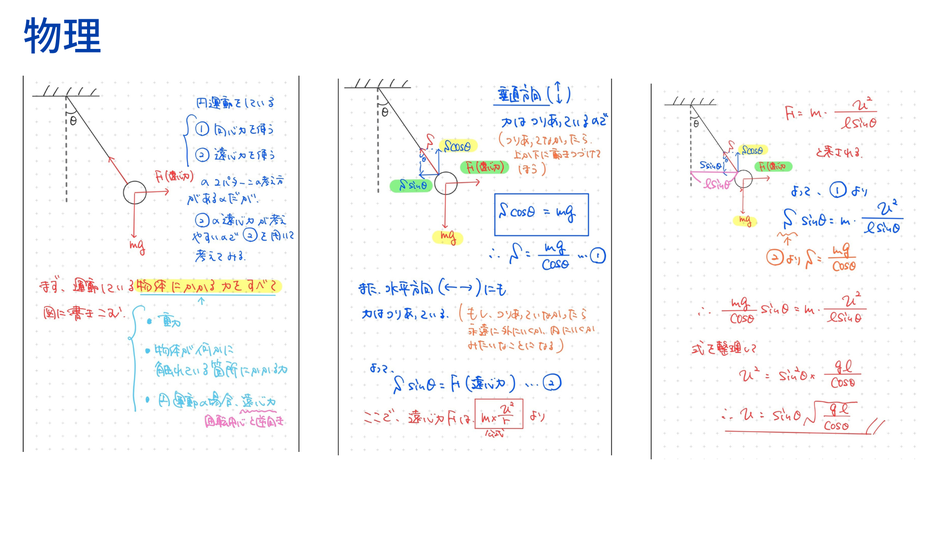 物理
θ
F(遠心力)
mg
円運動をしている
① 向心力を使う
② 遠心力を使う
の2パターンの考え方
があるのだが、
②の遠心力が考え
やすいので②を用いて
考えてみる。
まず、運動している物体にかかる力をすべて
図に書きこむ。
・重力
・物体が何かに
触れている箇所にかかる力
・円運動の場合、遠心力
回転中心と逆向き
θ
S
θ
Scosθ
F(遠心力)
S sinθ
mg
垂直方向(↕)
力はつりあっているので
(つりあってなかったら
上か下に動きつづけて
しまう)
S cosθ = mg
∴ S = mg/cosθ …①
また、水平方向(←→)にも
力はつりあっている。(もし、つりあっていなかったら
永遠に外にいくか、内にいくか
みたいなことになる)
よって、
S sinθ = F(遠心力) …②
ここで、遠心力Fは、m×u²/r より
公式
θ
S
θ
Scosθ
Ssinθ
F(遠心力)
lsinθ
mg
F = m・u²/lsinθ
と表される。
よって、①より
S sinθ = m・u²/lsinθ
②より S = mg/cosθ
∴ mg/cosθ sinθ = m・u²/lsinθ
式を整理して
u² = sin²θ × gl/cosθ
∴ u = sinθ√gl/cosθ